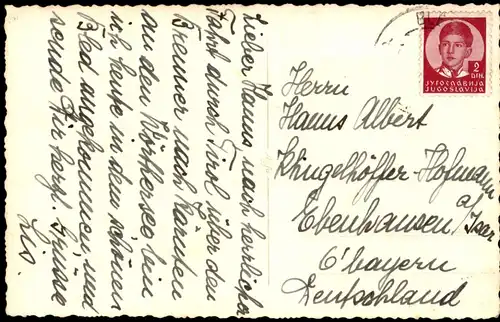 Lieber Hanns, nach herrlicher
Fahrt durch Tirol über den
Brenner nach Kärnten
an den Wörthersee bin
ich heute in dem schönen
Bled angekommen und
sende Dir herzl. Grüsse
Lis.
2
DIN.
ЈУГОСЛАВИЈА
JUGOSLAVIJA
Herrn
Hanns Albert
Klingelhöffer-Hofmann
Ebenhausen a/Isar
O'bayern
Deutschland